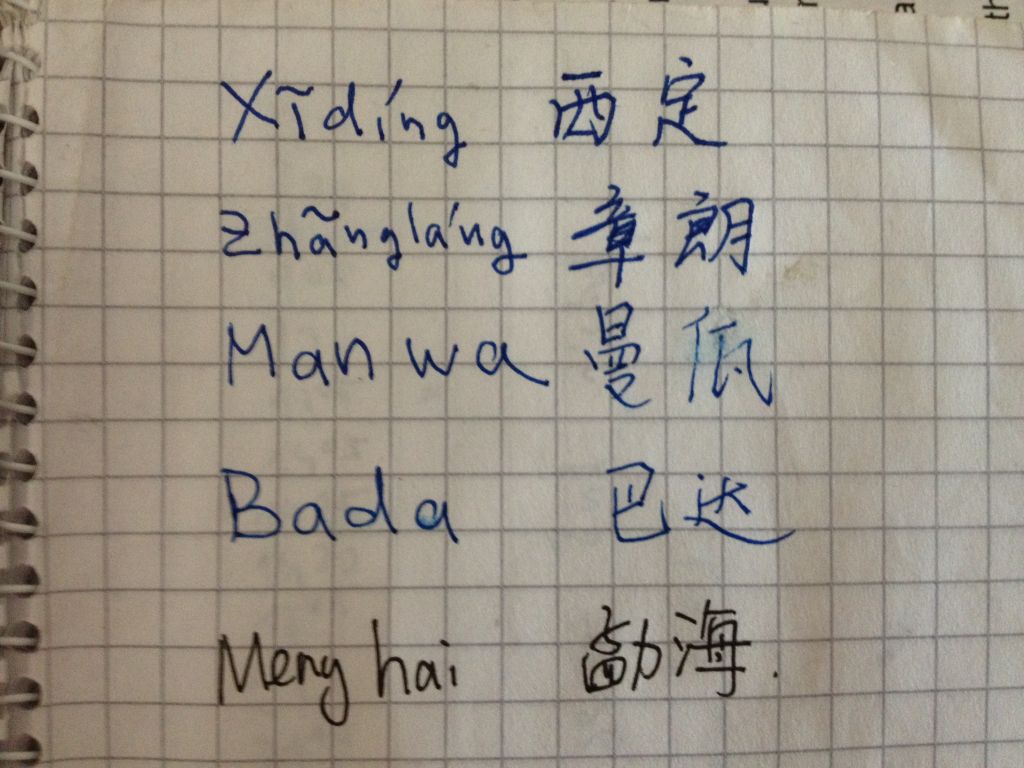 Xīdíng 西定
Zhāngláng 章朗
Man wa 曼佤
Bada 巴达
Meng hai 勐海.